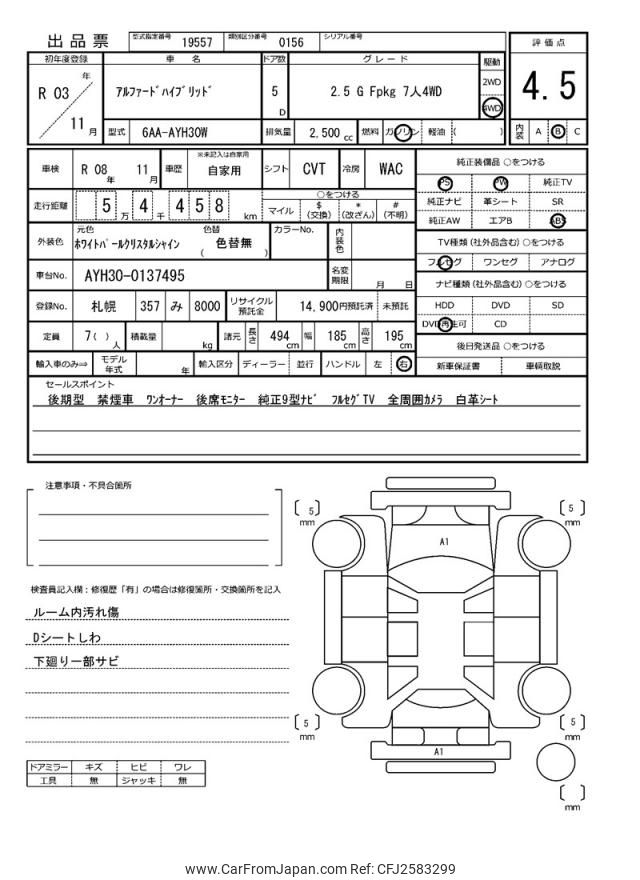 出品票 型式指定番号 19557 類別区分番号 0156 シリアル番号
評価点
4.5
内装 A B C
初年度登録 車名 ドア数 グレード 駆動
R 03 年 11 月
アルファードハイブリッド 5 D 2.5 G Fpkg 7人4WD 2WD 4WD
型式 6AA-AYH30W 排気量 2,500 cc 燃料 ガソリン 軽油 ( )
車検 R 08 年 11 月 車歴 ※未記入は自家用 自家用 シフト CVT 冷房 WAC
走行距離 5 万 4 千 4 5 8 km ○をつける マイル $ (交換) * (改ざん) # (不明)
外装色 元色 ホワイトパールクリスタルシャイン 色替 色替無 ( ) カラーNo. 内装色
車台No. AYH30-0137495 名変期限 月 日
登録No. 札幌 357 み 8000 リサイクル預託金 14,900円預託済 未預託
定員 7( ) 人 積載量 kg 諸元 長さ 494 cm 幅 185 cm 高さ 195 cm
輸入車のみ⇒ モデル年式 年 輸入区分 ディーラー 並行 ハンドル 左 右
純正装備品 ○をつける
PS PW 純正TV
純正ナビ 革シート SR
純正AW エアB ABS
TV種類 (社外品含む) ○をつける
フルセグ ワンセグ アナログ
ナビ種類 (社外品含む) ○をつける
HDD DVD SD
DVD再生可 CD
後日発送品 ○をつける
新車保証書 車輌取説
セールスポイント
後期型 禁煙車 ワンオーナー 後席モニター 純正9型ナビ フルセグTV 全周囲カメラ 白革シート
注意事項・不具合箇所
検査員記入欄:修復歴「有」の場合は修復箇所・交換箇所を記入
ルーム内汚れ傷
Dシートしわ
下廻り一部サビ
ドアミラー キズ ヒビ ワレ
工具 無 ジャッキ 無
[ 5 ] mm
[ 5 ] mm
A1
[ 5 ] mm
[ 5 ] mm
A1
[ ] mm
www.CarFromJapan.com Ref: CFJ2583299